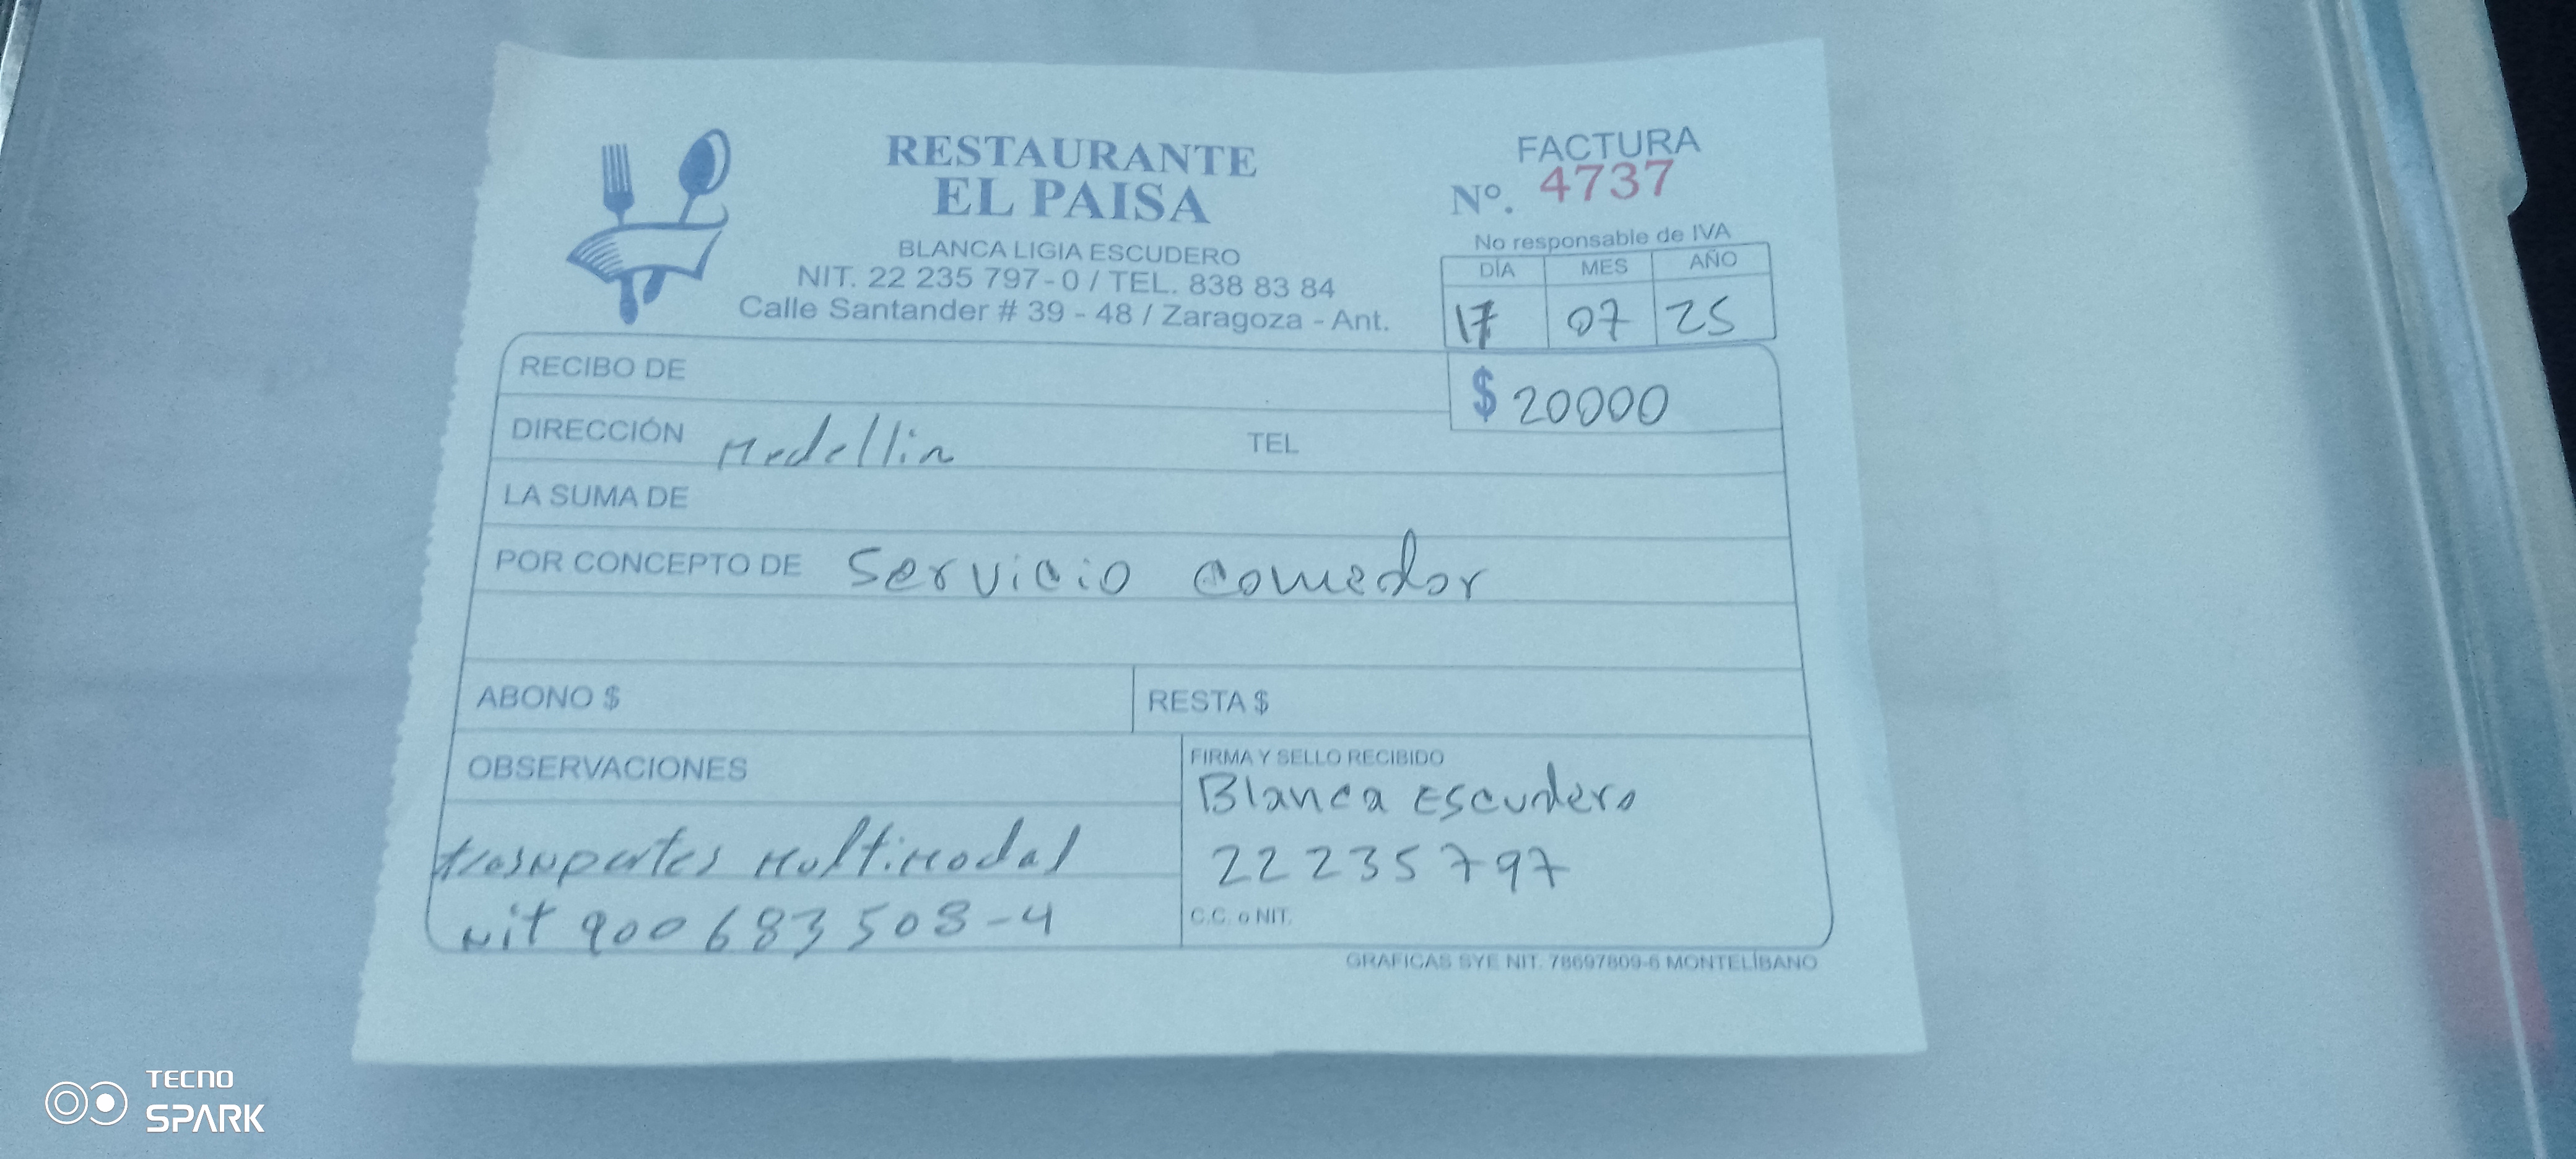 RESTAURANTE
EL PAISA
BLANCA LIGIA ESCUDERO
NIT. 22 235 797-0 / TEL. 838 83 84
Calle Santander # 39 - 48 / Zaragoza - Ant.
FACTURA
Nº. 4737
No responsable de IVA
DÍA MES AÑO
17 07 25
RECIBO DE
$ 20000
DIRECCIÓN Medellin TEL
LA SUMA DE
POR CONCEPTO DE Servicio comedor
ABONO $ RESTA $
OBSERVACIONES
trasnportes Multimodal
Nit 900683508-4
FIRMA Y SELLO RECIBIDO
Blanca Escudero
22235797
C.C. o NIT.
GRAFICAS SYE NIT. 78697809-6 MONTELÍBANO
TECNO
SPARK